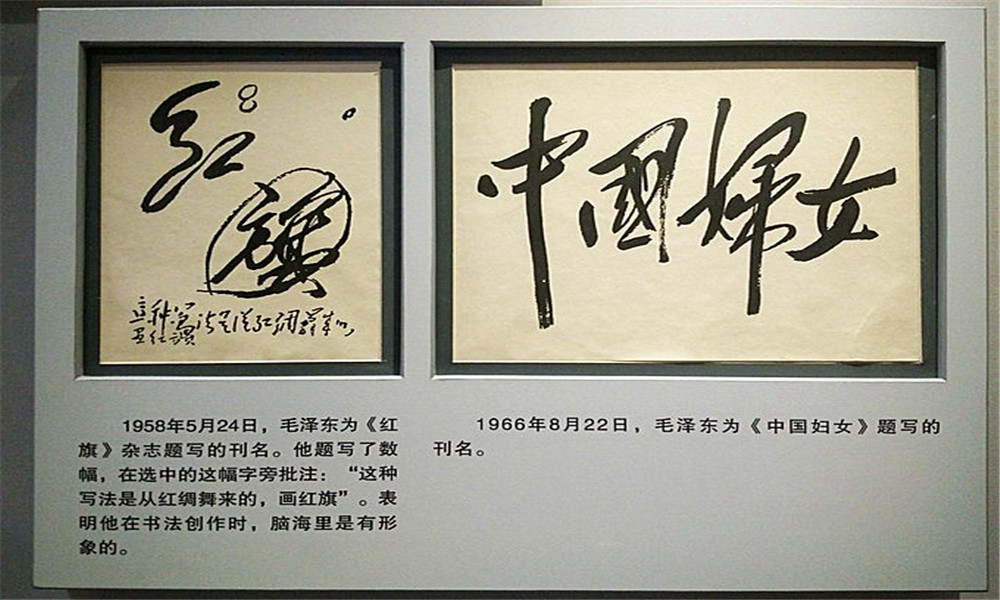 红
旗
这种写法是从红绸舞来的
画红旗
中国妇女
1958年5月24日，毛泽东为《红
旗》杂志题写的刊名。他题写了数
幅，在选中的这幅字旁批注：“这种
写法是从红绸舞来的，画红旗”。表
明他在书法创作时，脑海里是有形
象的。
1966年8月22日，毛泽东为《中国妇女》题写的
刊名。